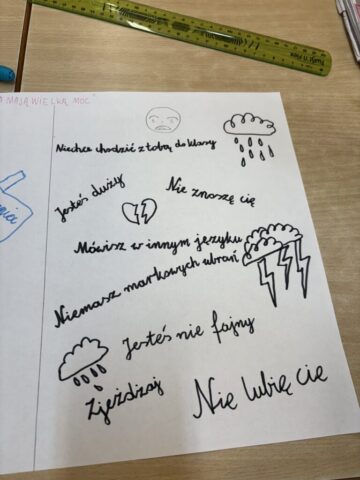 MAJĄ WIELKĄ MOC"
Niechce chodzić z tobą do klasy
Jesteś duży
Nie znoszę cię
Mówisz w innym języku
Niemasz markowych ubrań
Jesteś nie fajny
Zjeżdżaj
Nie lubię cie